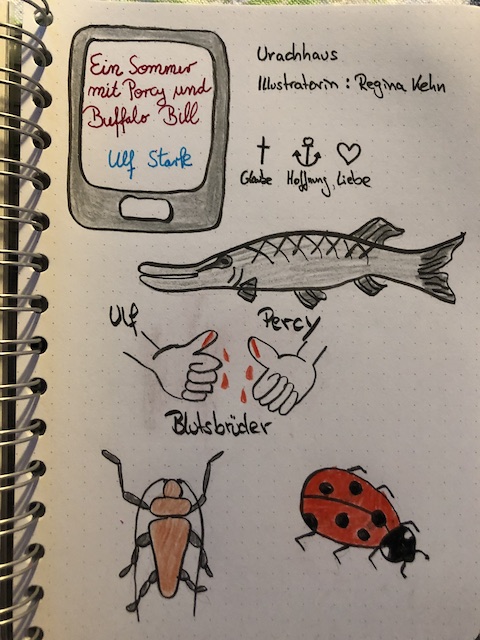 Ein Sommer
mit Percy und
Buffalo Bill
Ulf Stark
Urachhaus
Illustratorin : Regina Kehn
Glaube Hoffnung, Liebe
Ulf Percy
Blutsbrüder